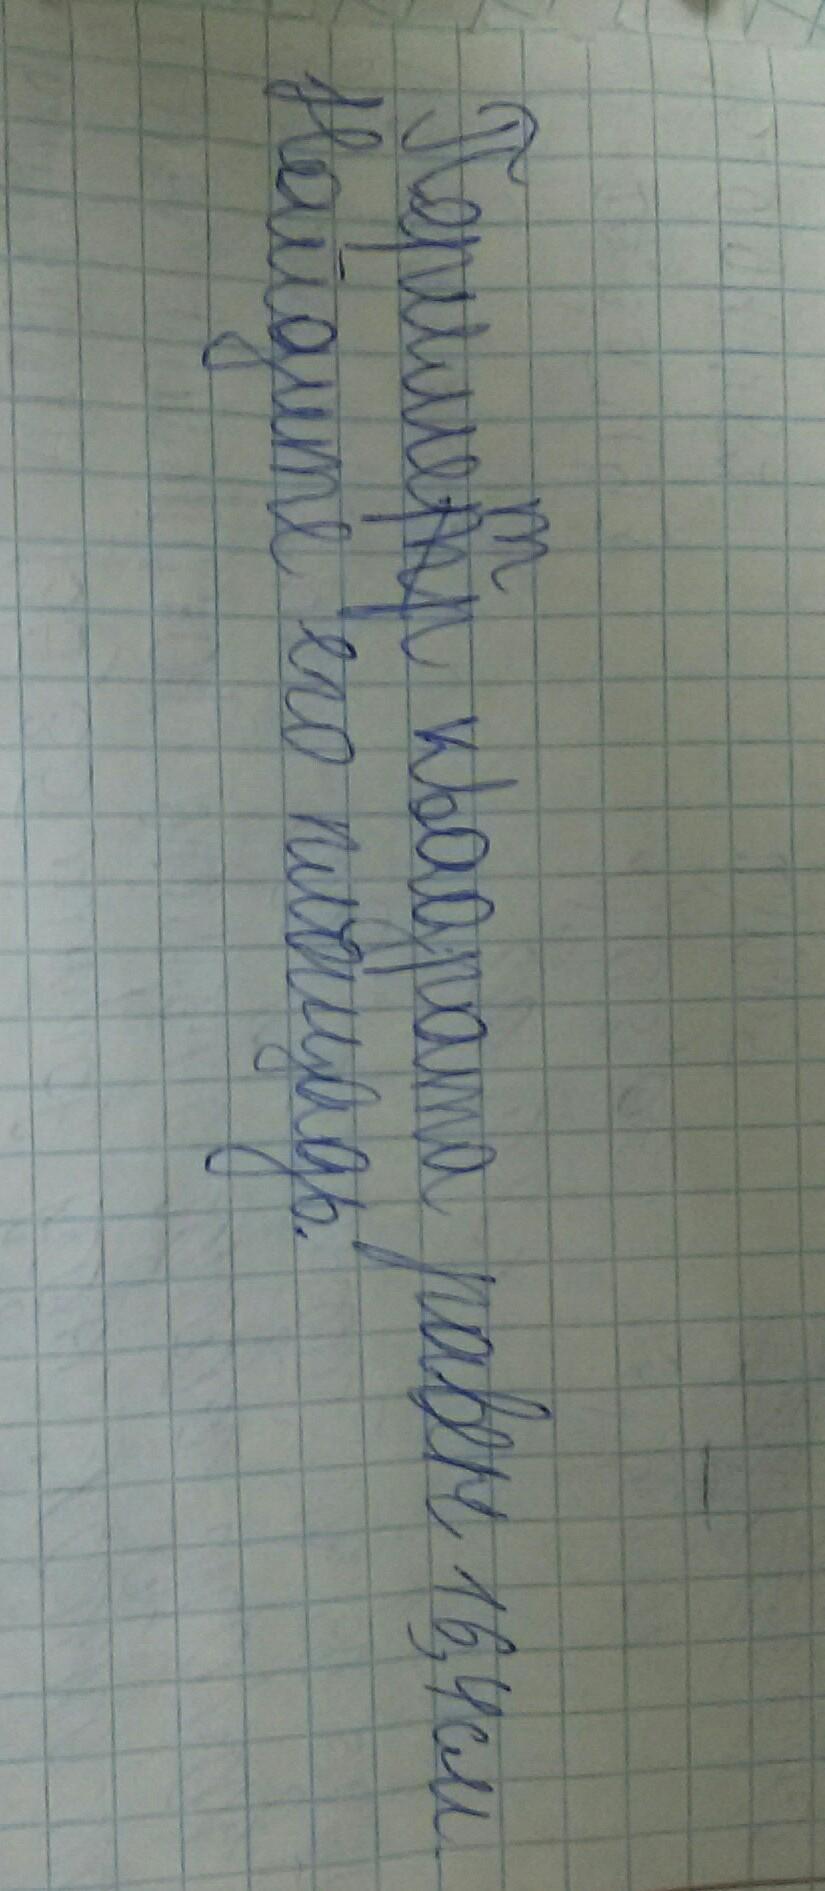 Периметр квадрата равен 16,4см
Найдите его площадь.